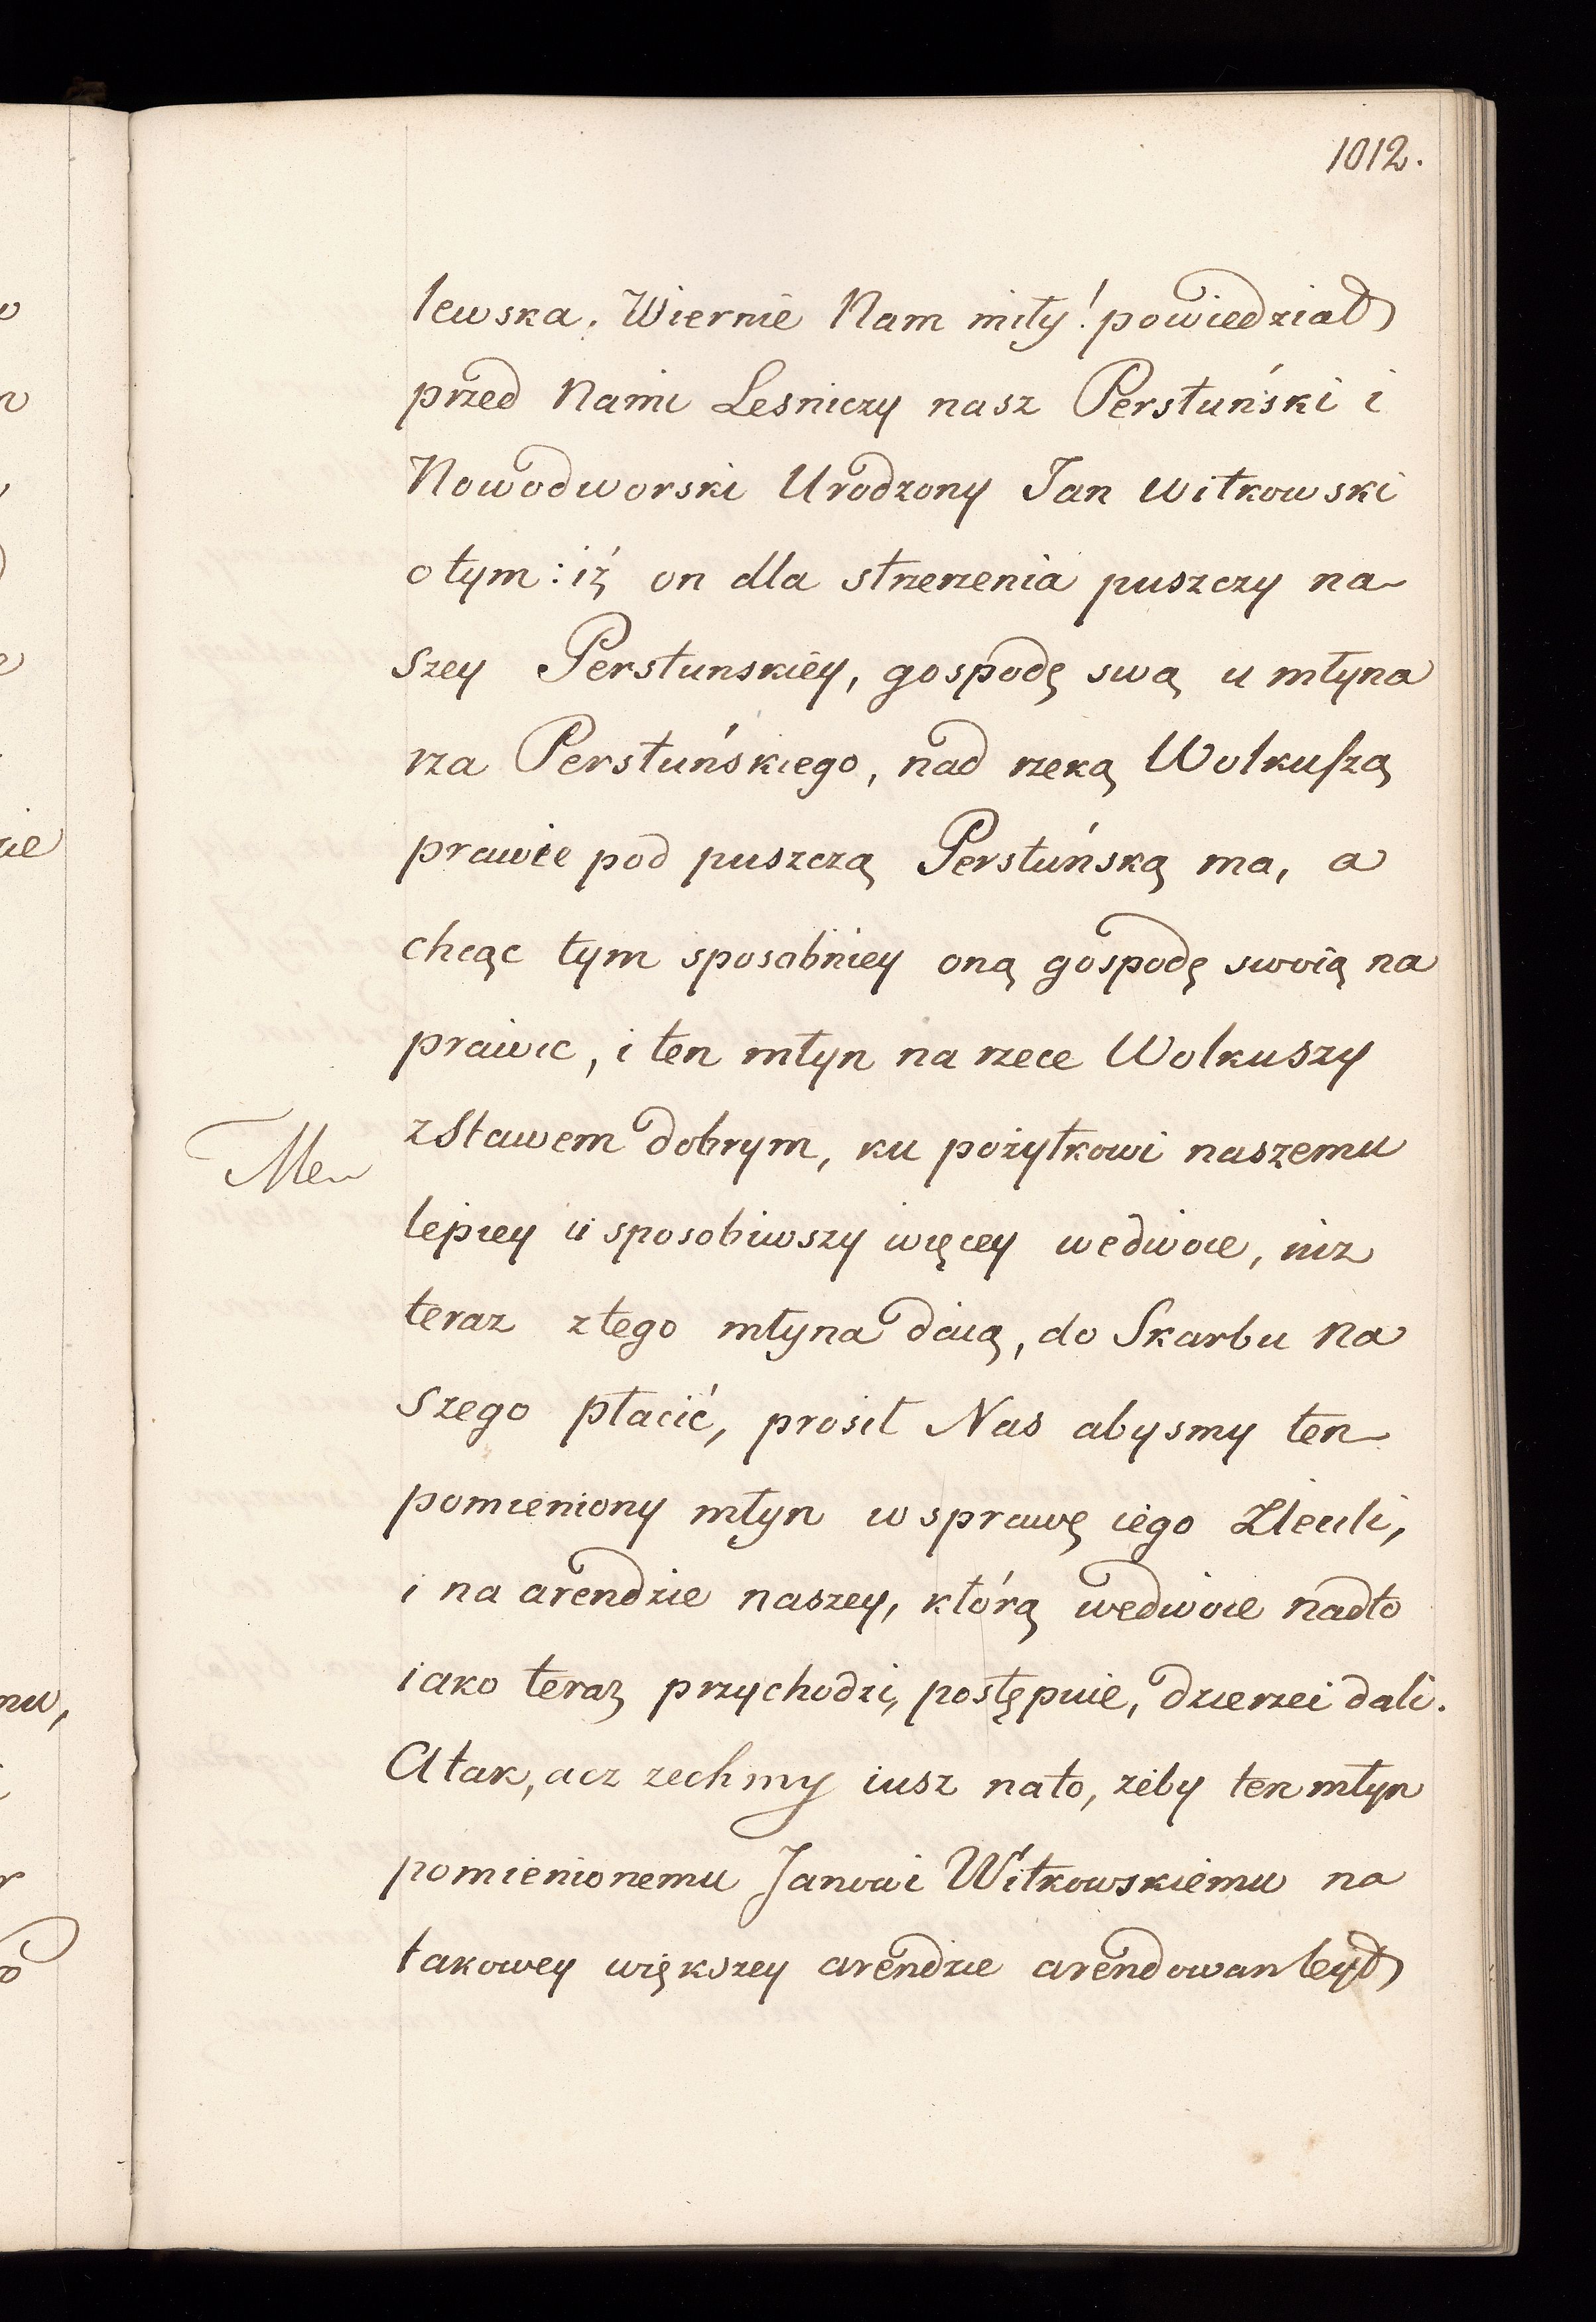 1012.
lewska. Wiernie Nam miły! powiedział
przed Nami Lesniczy nasz Perstuński i
Nowodworski Urodzony Jan Witkowski
o tym: iż on dla strzerzenia puszczy na-
szey Perstunskiey, gospodę swą u młyna
rza Perstuńskiego, nad rzeką Wolkuszą
prawie pod puszczą Perstuńską ma, a
chcąc tym sposobniey oną gospodę swoią na
prawic, i ten młyn na rzece Wolkuszy
z Stawem dobrym, ku pożytkowi naszemu
lepiey usposobiwszy więcey wedwoie, niz
teraz z tego młyna daią, do Skarbu Na
szego płacić, prosił Nas abysmy ten
pomieniony młyn w sprawę iego Zlecili,
i na arendzie naszey, którą wedwoie nadto
iako teraz przychodzi, postępuie, dzierzei dali.
A tak, acz zechmy iusz nato, zeby ten młyn
pomienionemu Janowi Witkowskiemu na
takowey większey arendzie arendowan był